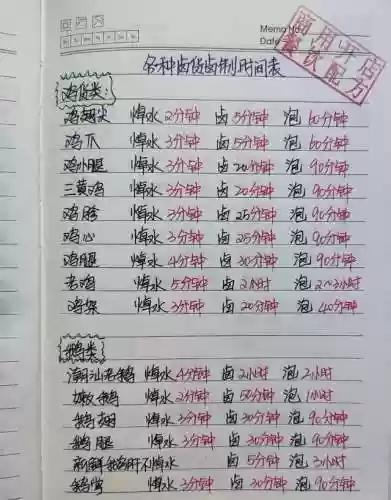 Memo No.
Date
商用开店
餐饮配方
各种卤货卤制时间表
鸡货类:
鸡翅尖 焯水2分钟 卤5分钟 泡60分钟
鸡爪 焯水3分钟 卤5分钟 泡60分钟
鸡小腿 焯水3分钟 卤20分钟 泡90分钟
三黄鸡 焯水3分钟 卤20分钟 泡90分钟
鸡胗 焯水3分钟 卤25分钟 泡90分钟
鸡心 焯水3分钟 卤25分钟 泡90分钟
鸡腿 焯水4分钟 卤30分钟 泡90分钟
老鸡 焯水5分钟 卤2小时 泡2~3小时
鸡架 焯水3分钟 卤20分钟 泡40分钟
鹅类
潮汕老鹅 焯水4分钟 卤2小时 泡2小时
嫩鹅 焯水2分钟 卤50分钟 泡1小时
鹅翅 焯水3分钟 卤30分钟 泡90分钟
鹅腿 焯水3分钟 卤30分钟 泡90分钟
新鲜鹅肝不焯水 卤5分钟 泡3小时
焯水3分钟 卤30分钟 泡90分钟